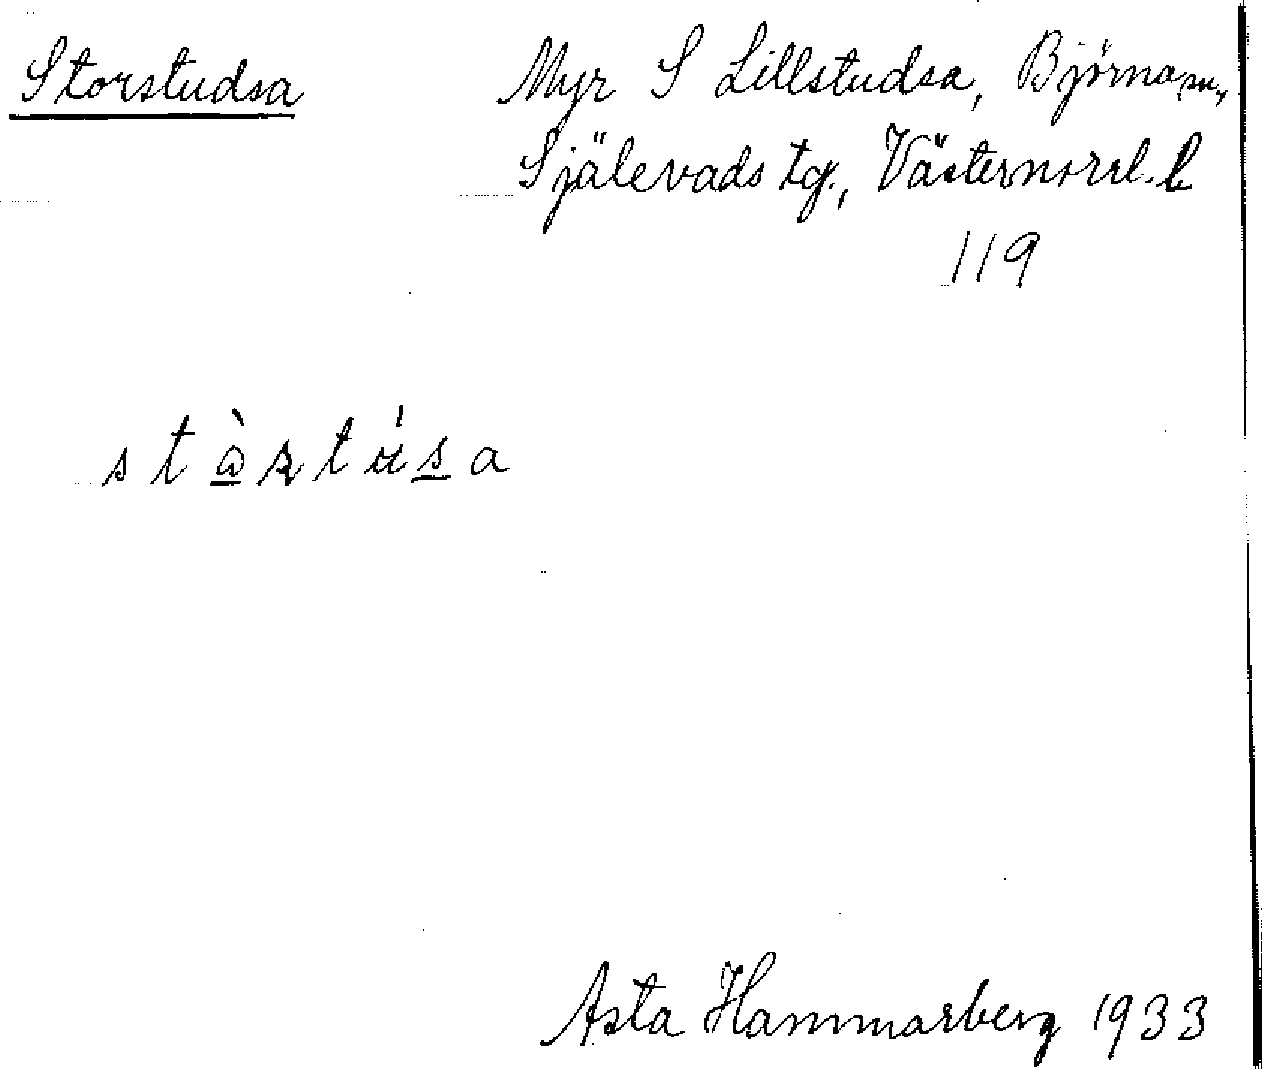 Storstudsa Myr S Lillstudsa, Björna sn,
Själevads tg., Västernorrl. l.
119
Asta Hammarberg 1933